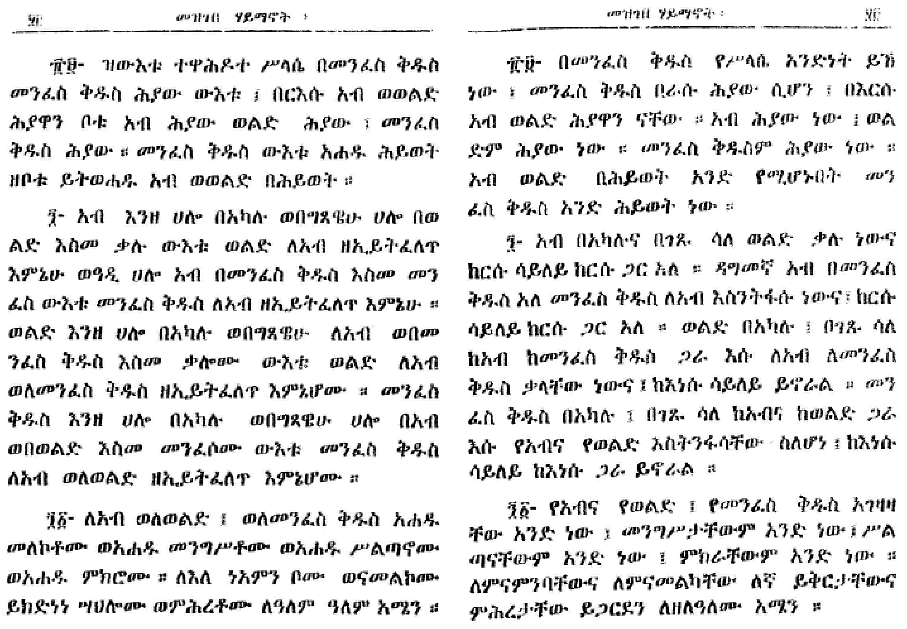 ፶፪ መዝገበ ሃይማኖት ፥
፳፱፡ ዝውእቱ ተዋሕዶተ ሥላሴ በመንፈስ ቅዱስ
መንፈስ ቅዱስ ሕያው ውእቱ ፤ በርእሱ አብ ወወልድ
ሕያዋን ቦቱ አብ ሕያው ወልድ ሕያው ፤ መንፈስ
ቅዱስ ሕያው ። መንፈስ ቅዱስ ውእቱ አሐዱ ሕይወት
ዘቦቱ ይትወሐዱ አብ ወወልድ በሕይወት ።
፯፡ አብ እንዘ ሀሎ በአካሉ ወበገጸዌሁ ሀሎ በወ
ልድ እስመ ቃሉ ውእቱ ወልድ ለአብ ዘኢይትፈለጥ
እምኔሁ ወዓዲ ሀሎ አብ በመንፈስ ቅዱስ እስመ መን
ፈስ ውእቱ መንፈስ ቅዱስ ለአብ ዘኢይትፈለጥ እምኔሁ ።
ወልድ እንዘ ሀሎ በአካሉ ወበገጸዌሁ ለአብ ወበመ
ንፈስ ቅዱስ እስመ ቃሎሙ ውእቱ ወልድ ለአብ
ወለመንፈስ ቅዱስ ዘኢይትፈለጥ እምኔሆሙ ። መንፈስ
ቅዱስ እንዘ ሀሎ በአካሉ ወበገጸዌሁ ሀሎ በአብ
ወበወልድ እስመ መንፈሶሙ ውእቱ መንፈስ ቅዱስ
ለአብ ወለወልድ ዘኢይትፈለጥ እምኔሆሙ ።
፸፩፡ ለአብ ወለወልድ ፤ ወለመንፈስ ቅዱስ አሐዱ
መለኮቶሙ ወአሐዱ መንግሥቶሙ ወአሐዱ ሥልጣኖሙ
ወአሐዱ ምክሮሙ ። ለእለ ነአምን ቦሙ ወናመልኮሙ
ይክድነነ ሣህሎሙ ወምሕረቶሙ ለዓለም ዓለም አሜን ።
መዝገበ ሃይማኖት ፡
፳፱፡ በመንፈስ ቅዱስ የሥላሴ አንድነት ይኽ
ነው ፤ መንፈስ ቅዱስ በራሱ ሕያው ሲሆን ፤ በእርሱ
አብ ወልድ ሕያዋን ናቸው ። አብ ሕያው ነው ፤ ወል
ድም ሕያው ነው ። መንፈስ ቅዱስም ሕያው ነው ።
አብ ወልድ በሕይወት አንድ የሚሆኑበት መን
ፈስ ቅዱስ አንድ ሕይወት ነው ።
፯፡ አብ በአካሉና በገጹ ሳለ ወልድ ቃሉ ነውና
ከርሱ ሳይለይ ከርሱ ጋር አለ ። ዳግመኛ አብ በመንፈስ
ቅዱስ አለ መንፈስ ቅዱስ ለአብ እስንትፋሱ ነውና ፤ ከርሱ
ሳይለይ ከርሱ ጋር አለ ። ወልድ በአካሉ ፤ በገጹ ሳለ
ከአብ ከመንፈስ ቅዱስ ጋራ እሱ ለአብ ለመንፈስ
ቅዱስ ቃላቸው ነውና ፤ ከእነሱ ሳይለይ ይኖራል ። መን
ፈስ ቅዱስ በአካሉ ፤ በገጹ ሳለ ከአብና ከወልድ ጋራ
እሱ የአብና የወልድ እስትንፋሳቸው ስለሆነ ፤ ከእነሱ
ሳይለይ ከእነሱ ጋራ ይኖራል ።
፸፩፡ የአብና የወልድ ፤ የመንፈስ ቅዱስ አገዛዛ
ቸው አንድ ነው ፤ መንግሥታቸውም አንድ ነው ፤ ሥል
ጣናቸውም አንድ ነው ፤ ምክራቸውም አንድ ነው ።
ለምናምንባቸውና ለምናመልካቸው ለኛ ይቅርታቸውና
ምሕረታቸው ይጋርደን ለዘለዓለሙ አሜን ።